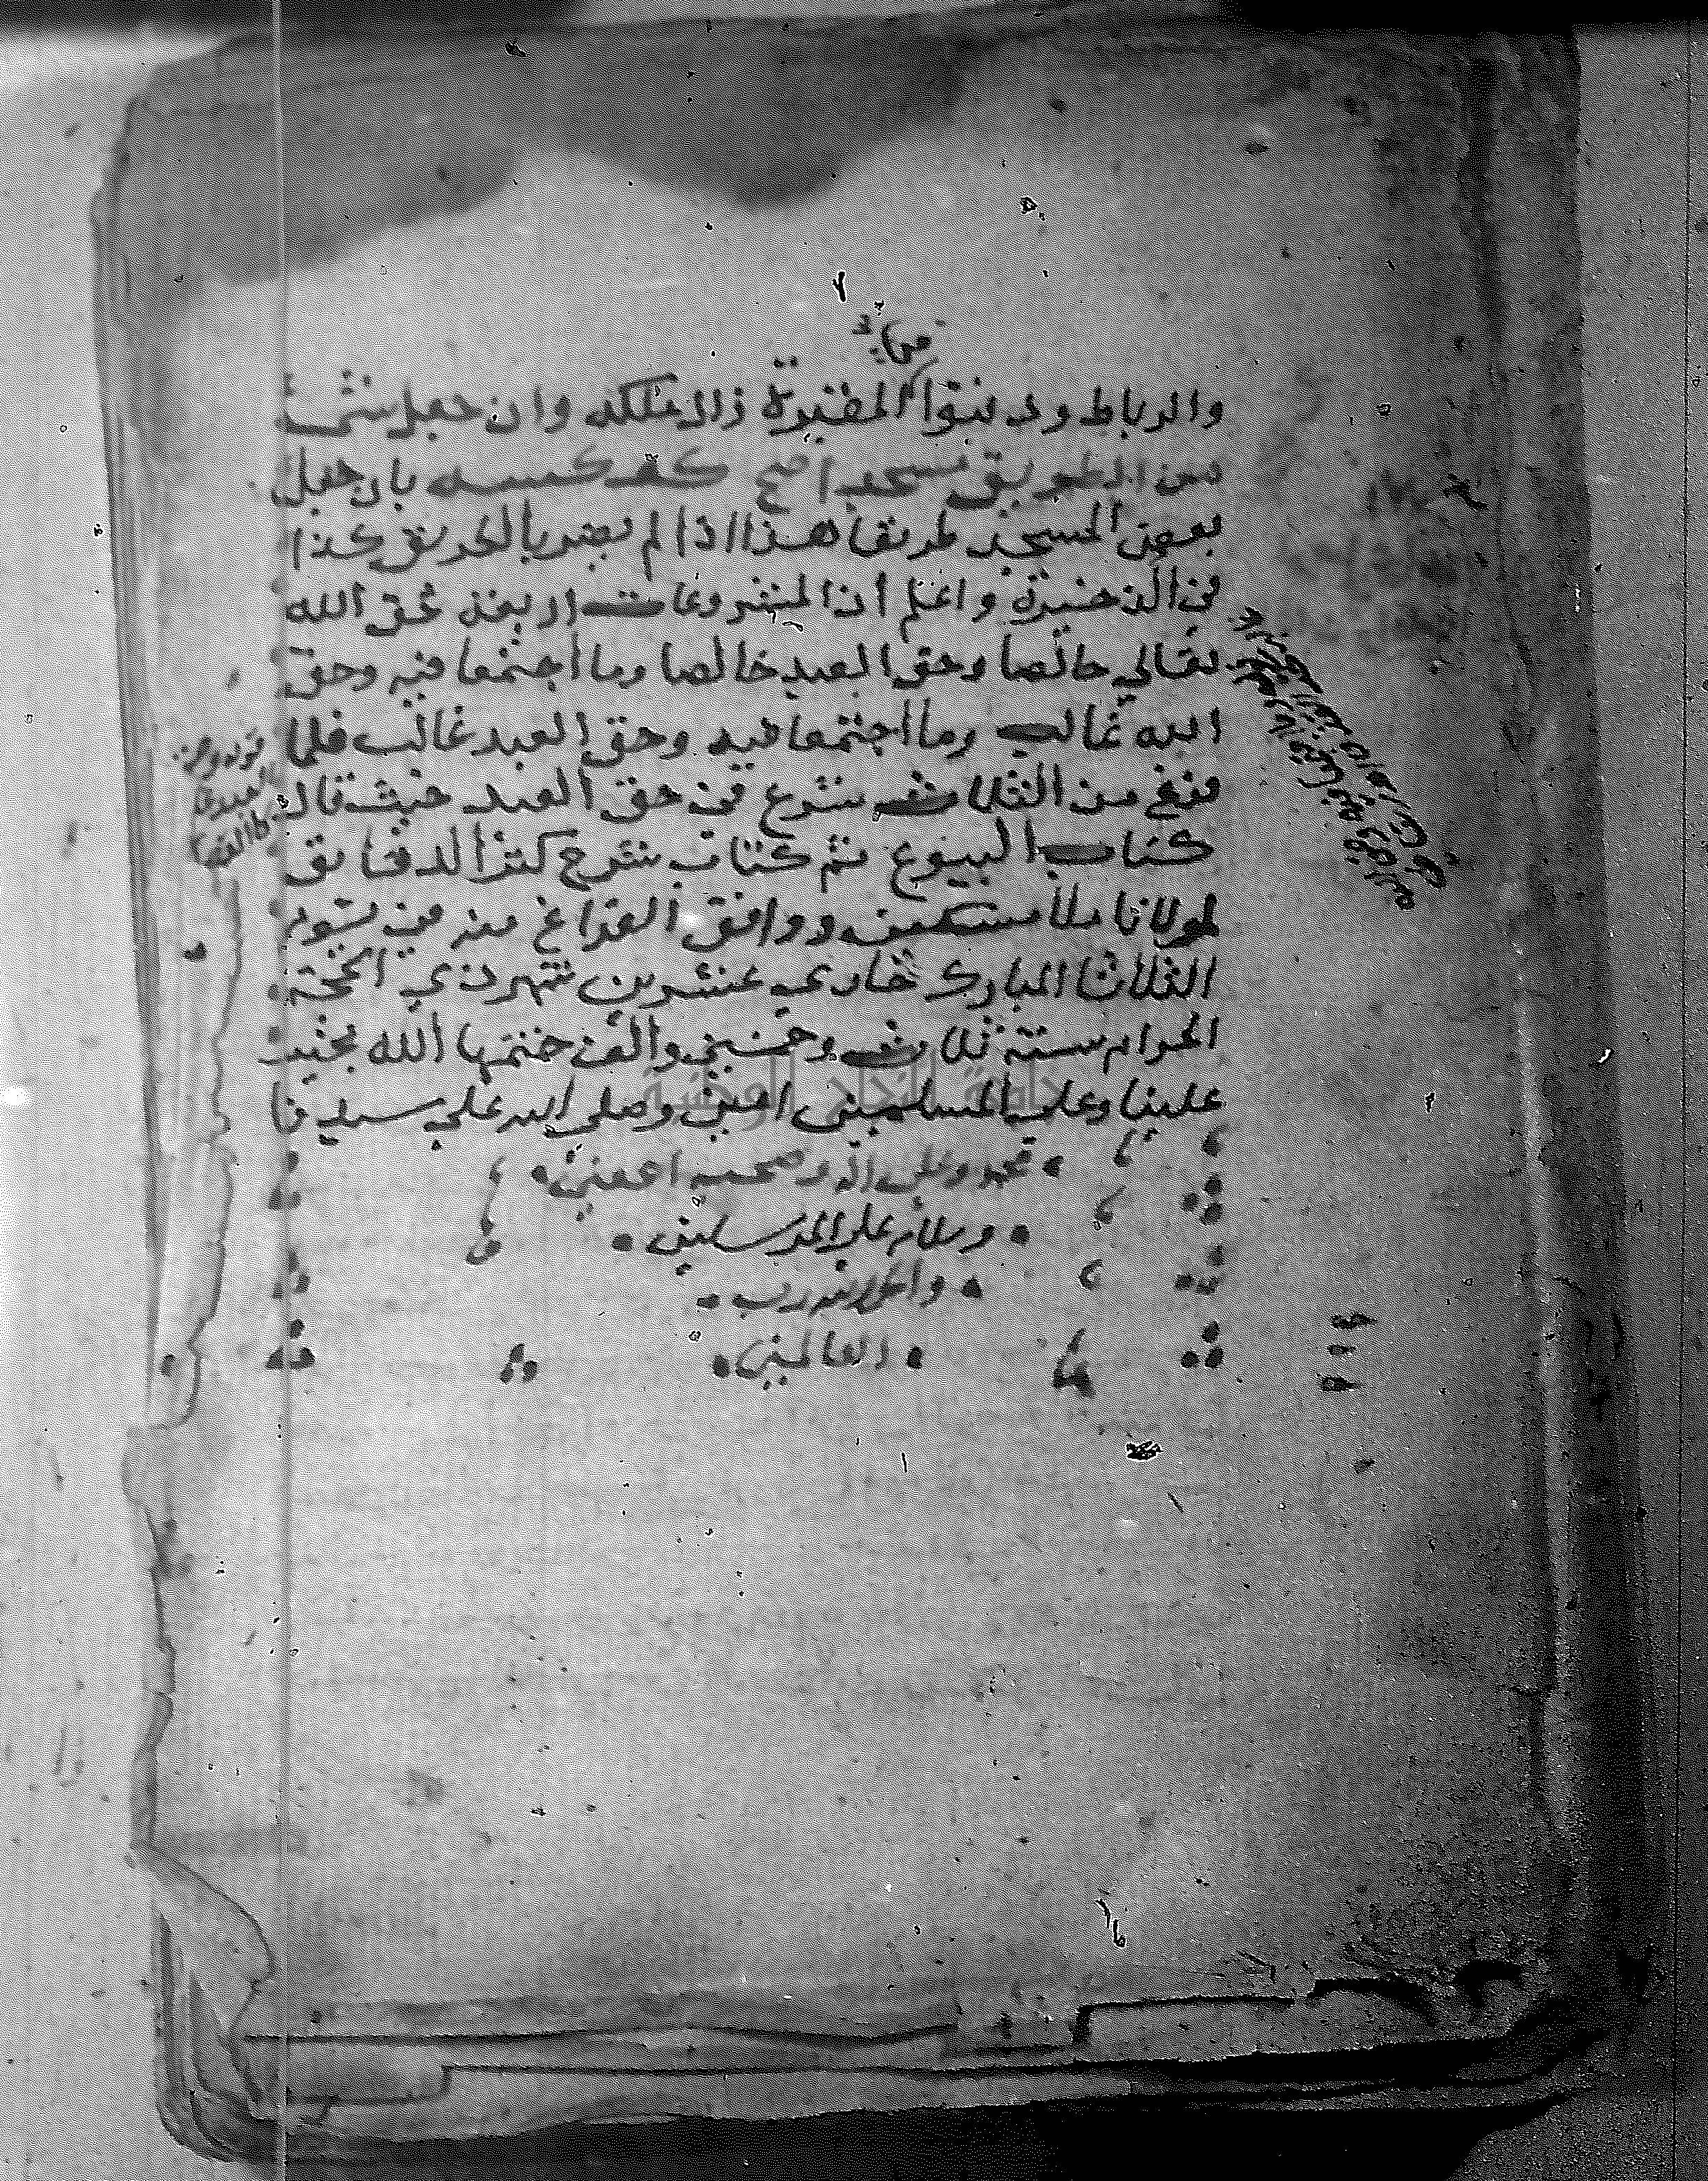 والرباط ودفنوا المقبرة زال ملكه وان جعل شى
من الطريق مسجدا صح كعكسه بان جعل
بعض المسجد طريقا هذا اذا لم يضر بالطريق كذا
فى الذخيرة واعلم ان المشروعات اربعة حق الله
تعالي خالصا وحق العبد خالصا وما اجتمعا فيه وحق
الله غالب وما اجتمعا فيه وحق العبد غالب فلما
فرغ من الثلاث شرع في حق العبد حيث قال
كتاب البيوع تم كتاب شرح كنز الدقايق
لمولانا ملا مسكين ووافق الفراغ منه في يوم
الثلاثا المبارك حادي عشرين شهر ذي الحجة
الحرام سنة ثلاث وخمسين والف ختمها الله بخير
علينا وعلي المسلمين امين وصلى الله علي سيدنا
محمد وعلى اله وصحبه اجمعين
وسلام على المرسلين
والحمد لله رب
العالمين
جامعة النجاح الوطنية